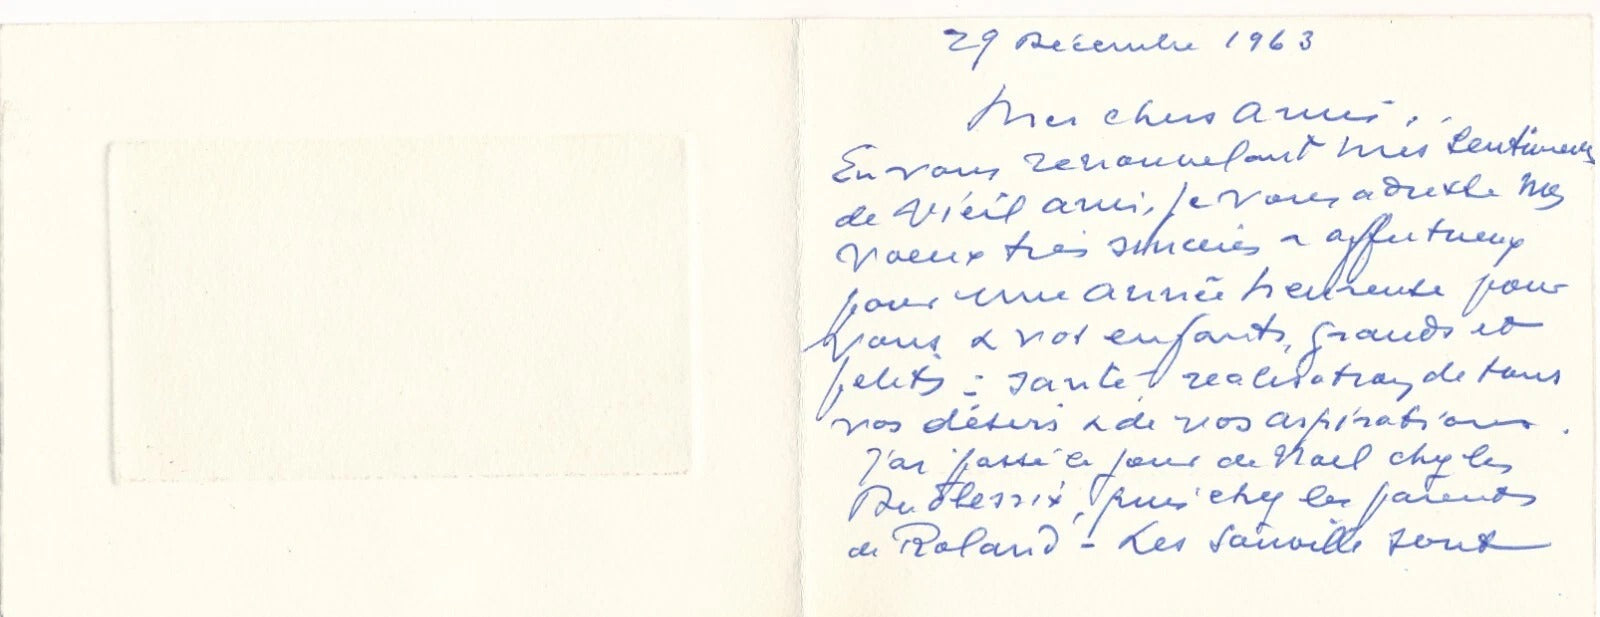 29 Décembre 1963
Mes chers Amis,
En vous renouvelant mes sentiments
de vieil ami, je vous adresse mes
voeux très sincères & affectueux
pour une année heureuse pour
vous & vos enfants, grands et
petits : santé, réalisation de tous
vos désirs & de vos aspirations.
J'ai passé le jour de Noël chez les
Du Plessix, puis chez les parents
de Roland - Les Sainville sont